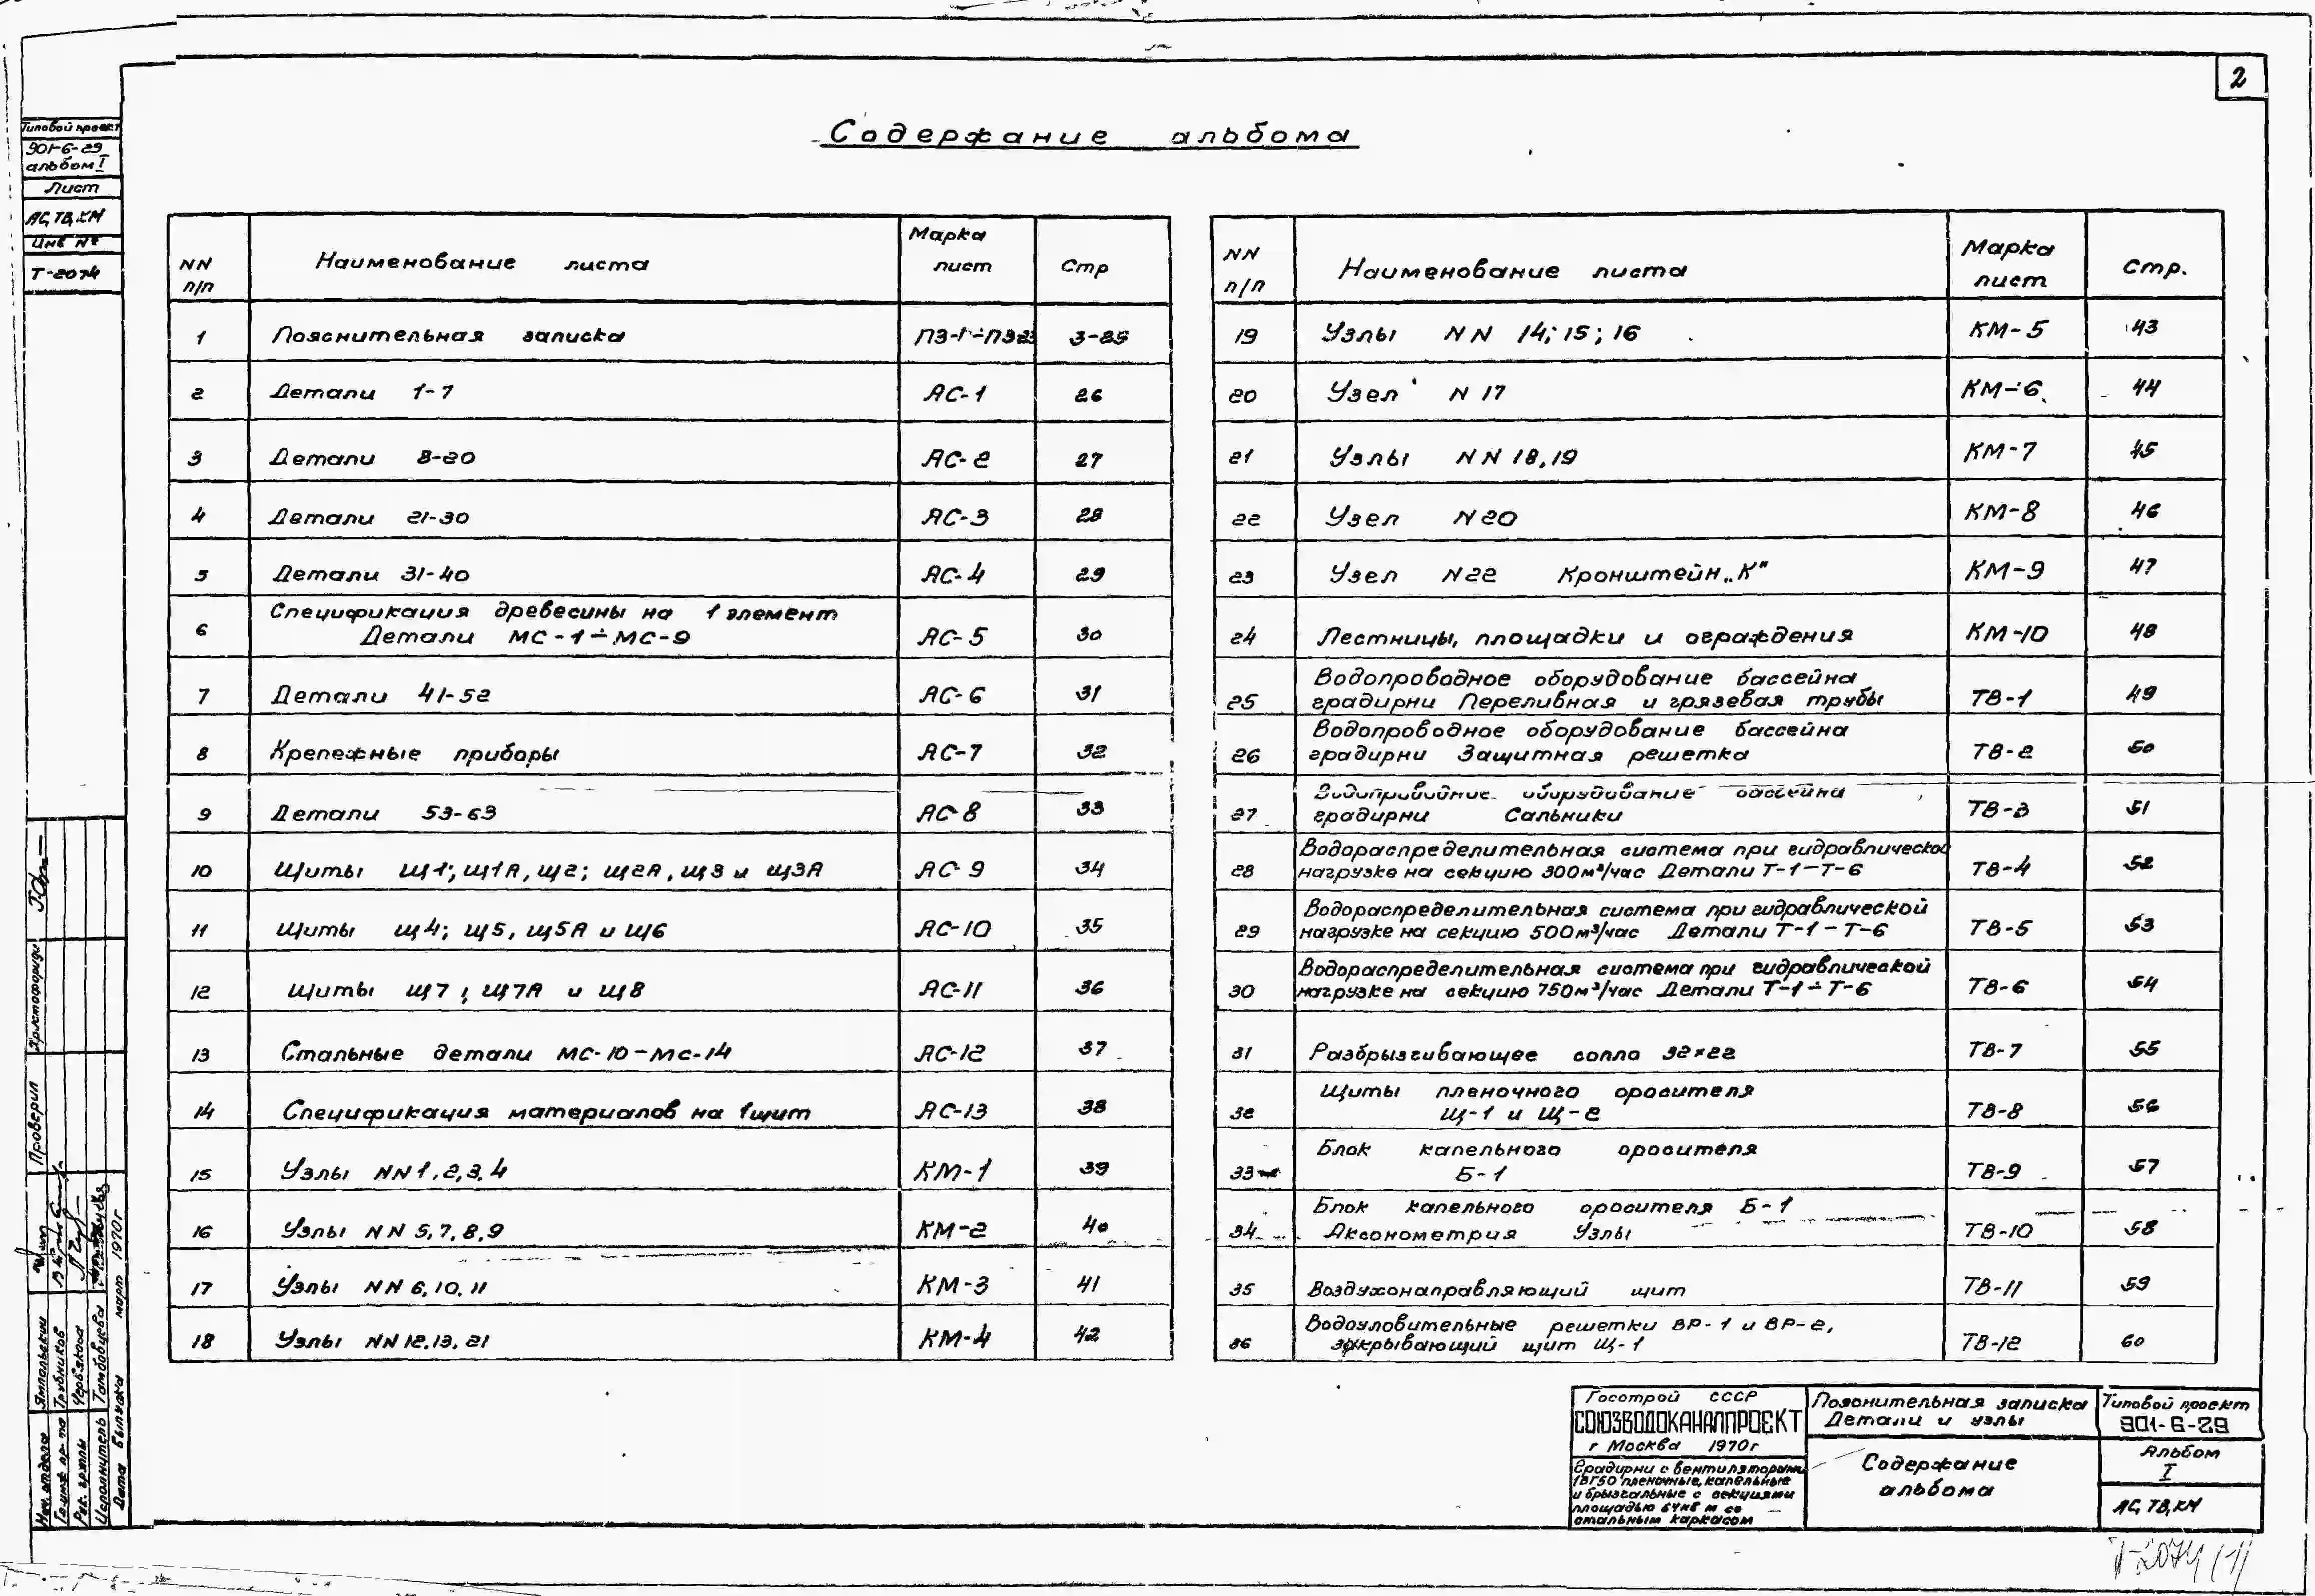 2
Типовой проект
901-6-29
альбом I
Лист
АС, ТВ, КМ
Инв №
Т-2074
Содержание альбома
NN п/п Наименование листа Марка лист Стр
1 Пояснительная записка ПЗ-1÷ПЗ-23 3-25
2 Детали 1-7 АС-1 26
3 Детали 8-20 АС-2 27
4 Детали 21-30 АС-3 28
5 Детали 31-40 АС-4 29
6 Спецификация древесины на 1 элемент
Детали МС-1÷МС-9 АС-5 30
7 Детали 41-52 АС-6 31
8 Крепежные приборы АС-7 32
9 Детали 53-63 АС-8 33
10 Щиты Щ1; Щ1А, Щ2; Щ2А, Щ3 и Щ3А АС-9 34
11 Щиты Щ4; Щ5, Щ5А и Щ6 АС-10 35
12 Щиты Щ7; Щ7А и Щ8 АС-11 36
13 Стальные детали МС-10-МС-14 АС-12 37
14 Спецификация материалов на 1щит АС-13 38
15 Узлы NN 1, 2, 3, 4 КМ-1 39
16 Узлы NN 5, 7, 8, 9 КМ-2 40
17 Узлы NN 6, 10, 11 КМ-3 41
18 Узлы NN 12, 13, 21 КМ-4 42
NN п/п Наименование листа Марка лист Стр.
19 Узлы NN 14; 15; 16 КМ-5 43
20 Узел N 17 КМ-6 44
21 Узлы NN 18, 19 КМ-7 45
22 Узел N 20 КМ-8 46
23 Узел N 22 Кронштейн „К" КМ-9 47
24 Лестницы, площадки и ограждения КМ-10 48
25 Водопроводное оборудование бассейна
градирни Переливная и грязевая трубы ТВ-1 49
26 Водопроводное оборудование бассейна
градирни Защитная решетка ТВ-2 50
27 Водопроводное оборудование бассейна
градирни Сальники ТВ-3 51
28 Водораспределительная система при гидравлической
нагрузке на секцию 300м³/час Детали Т-1-Т-6 ТВ-4 52
29 Водораспределительная система при гидравлической
нагрузке на секцию 500м³/час Детали Т-1-Т-6 ТВ-5 53
30 Водораспределительная система при гидравлической
нагрузке на секцию 750м³/час Детали Т-1÷Т-6 ТВ-6 54
31 Разбрызгивающее сопло 32×22 ТВ-7 55
32 Щиты пленочного оросителя
Щ-1 и Щ-2 ТВ-8 56
33 Блок капельного оросителя
Б-1 ТВ-9 57
34 Блок капельного оросителя Б-1
Аксонометрия Узлы ТВ-10 58
35 Воздухонаправляющий щит ТВ-11 59
36 Водоуловительные решетки ВР-1 и ВР-2,
закрывающий щит Щ-1 ТВ-12 60
Проверил
Нач. отдела Ямпольский
Гл. инж. пр-та Трубников
Рук. группы Червякова
Исполнитель Тамбовцева
Дата выпуска март 1970г
Госстрой СССР
СОЮЗВОДОКАНАЛПРОЕКТ
г Москва 1970г
Градирни с вентиляторами
1ВГ50 пленочные, капельные
и брызгальные с секциями
площадью 64м² м со
стальным каркасом
Пояснительная записка
Детали и узлы
Содержание
альбома
Типовой проект
901-6-29
Альбом
I
АС, ТВ, КМ
Т-2074 (1)